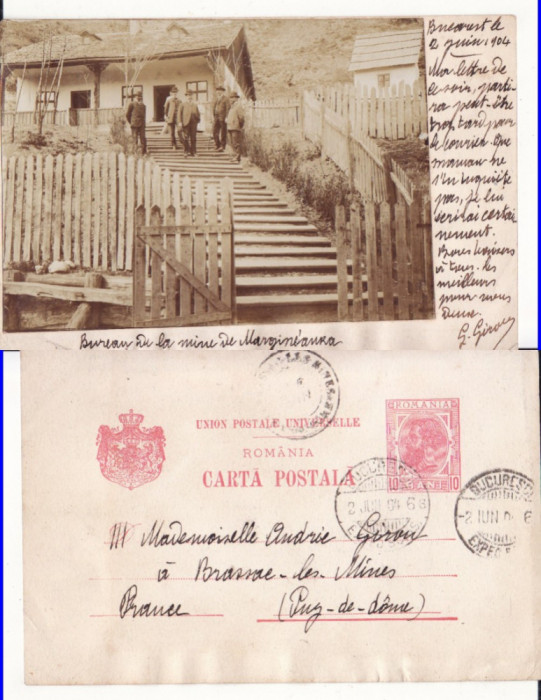 Bucarest le
2 juin 1904
Ma lettre de
ce soir, parti-
ra peut-être
trop tard pour
le courrier. Que
maman ne
s'inquiète
pas, je lui
écrirai certai-
nement.
Bons baisers
à tous. Les
meilleurs
pour vous
deux.
G. Girou
Bureau de la mine de Marginéanka
UNION POSTALE UNIVERSELLE
ROMÂNIA
CARTĂ POSTALĂ
ROMANIA
10 BANI 10
BUCURESCI
2 JUN 04 6
EXPED
BUCURESCI
2 IUN 04 6
EXPED
M Mademoiselle Andrée Girou
à Brassac-les-Mines
France (Puy-de-dôme)